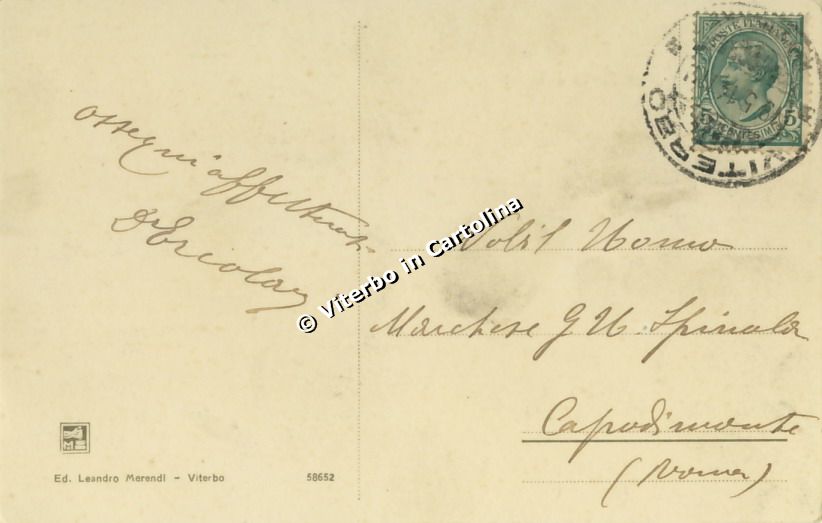 ossequi affettuosi
Dr Ercolani
Nobil Uomo
Marchese G U Spinola
Capodimonte
(Roma)
POSTE ITALIANE
5 CENTESIMI 5
VITERBO
© Viterbo in Cartolina
Ed. Leandro Merendi - Viterbo 58652